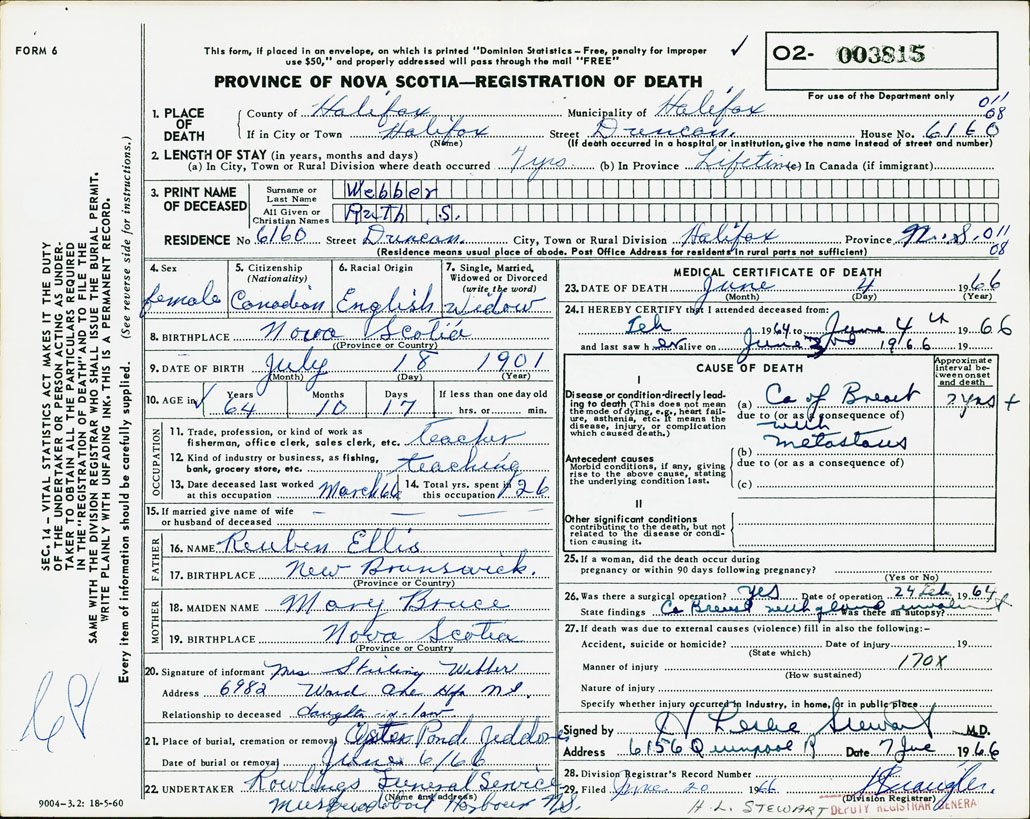 FORM 6
This form, if placed in an envelope, on which is printed "Dominion Statistics – Free, penalty for improper
use $50," and properly addressed will pass through the mail "FREE"
✓
O2- 003815
For use of the Department only
PROVINCE OF NOVA SCOTIA—REGISTRATION OF DEATH
011
08
1. PLACE OF DEATH County of Halifax Municipality of Halifax
If in City or Town Halifax Street Duncan. House No. 6160
(Name) (If death occurred in a hospital or institution, give the name instead of street and number)
2. LENGTH OF STAY (in years, months and days)
(a) In City, Town or Rural Division where death occurred 7 yrs. (b) In Province Lifetime (c) In Canada (if immigrant)
3. PRINT NAME OF DECEASED Surname or Last Name Webber
All Given or Christian Names Ruth S.
RESIDENCE No 6160 Street Duncan. City, Town or Rural Division Halifax Province N.S. 011
(Residence means usual place of abode. Post Office Address for residents in rural parts not sufficient) 08
4. Sex female
5. Citizenship (Nationality) Canadian
6. Racial Origin English
7. Single, Married, Widowed or Divorced (write the word) Widow
8. BIRTHPLACE Nova Scotia
(Province or Country)
9. DATE OF BIRTH July 18 1901
(Month) (Day) (Year)
10. AGE in ✓ Years 64 Months 10 Days 17 If less than one day old
hrs. or min.
OCCUPATION
11. Trade, profession, or kind of work as
fisherman, office clerk, sales clerk, etc. teacher
12. Kind of industry or business, as fishing,
bank, grocery store, etc. teaching
13. Date deceased last worked at this occupation March 66
14. Total yrs. spent in this occupation 26
15. If married give name of wife
or husband of deceased — — — —
FATHER
16. NAME Reuben Ellis
17. BIRTHPLACE New Brunswick.
(Province or Country)
MOTHER
18. MAIDEN NAME Mary Bruce
19. BIRTHPLACE Nova Scotia
(Province or Country)
20. Signature of informant Mrs Stirling Webber
Address 6982 Ward Ave Hfx N.S.
Relationship to deceased daughter-in-law
21. Place of burial, cremation or removal Oyster Pond, Jeddore
Date of burial or removal June 6/66
22. UNDERTAKER Rowlings Funeral Service
(Name and address)
Musquodoboit Harbour N.S.
MEDICAL CERTIFICATE OF DEATH
23. DATE OF DEATH June 4 1966
(Month) (Day) (Year)
24. I HEREBY CERTIFY that I attended deceased from:
Feb 1964 to June 4th 1966
and last saw her alive on June 3rd 1966 19
CAUSE OF DEATH
Approximate interval between onset and death
I
Disease or condition directly leading to death (This does not mean the mode of dying, e.g., heart failure, asthenia, etc. It means the disease, injury, or complication which caused death.)
(a) Ca of Breast 2 yrs +
due to (or as a consequence of)
with
metastasis
Antecedent causes
Morbid conditions, if any, giving rise to the above cause, stating the underlying condition last.
(b)
due to (or as a consequence of)
(c)
II
Other significant conditions
contributing to the death, but not related to the disease or condition causing it.
25. If a woman, did the death occur during
pregnancy or within 90 days following pregnancy?
(Yes or No)
26. Was there a surgical operation? Yes Date of operation 24 Feb 1964
State findings Ca Breast with gland Was there an autopsy?
27. If death was due to external causes (violence) fill in also the following:–
Accident, suicide or homicide? Date of injury 19
(State which)
170X
Manner of injury
(How sustained)
Nature of injury
Specify whether injury occurred in industry, in home, or in public place
Signed by H Leslie Stewart M.D.
Address 6156 Quinpool R Date 7 June 1966
28. Division Registrar's Record Number
29. Filed June 20 1966
(Division Registrar)
H. L. STEWART
DEPUTY REGISTRAR GENERA
SEC. 14 – VITAL STATISTICS ACT MAKES IT THE DUTY
OF THE UNDERTAKER OR PERSON ACTING AS UNDER-
TAKER TO OBTAIN ALL THE PARTICULARS REQUIRED
IN THE "REGISTRATION OF DEATH" AND TO FILE THE
SAME WITH THE DIVISION REGISTRAR WHO SHALL ISSUE THE BURIAL PERMIT.
WRITE PLAINLY WITH UNFADING INK. THIS IS A PERMANENT RECORD.
Every item of information should be carefully supplied. (See reverse side for instructions.)
9004–3.2: 18-5-60